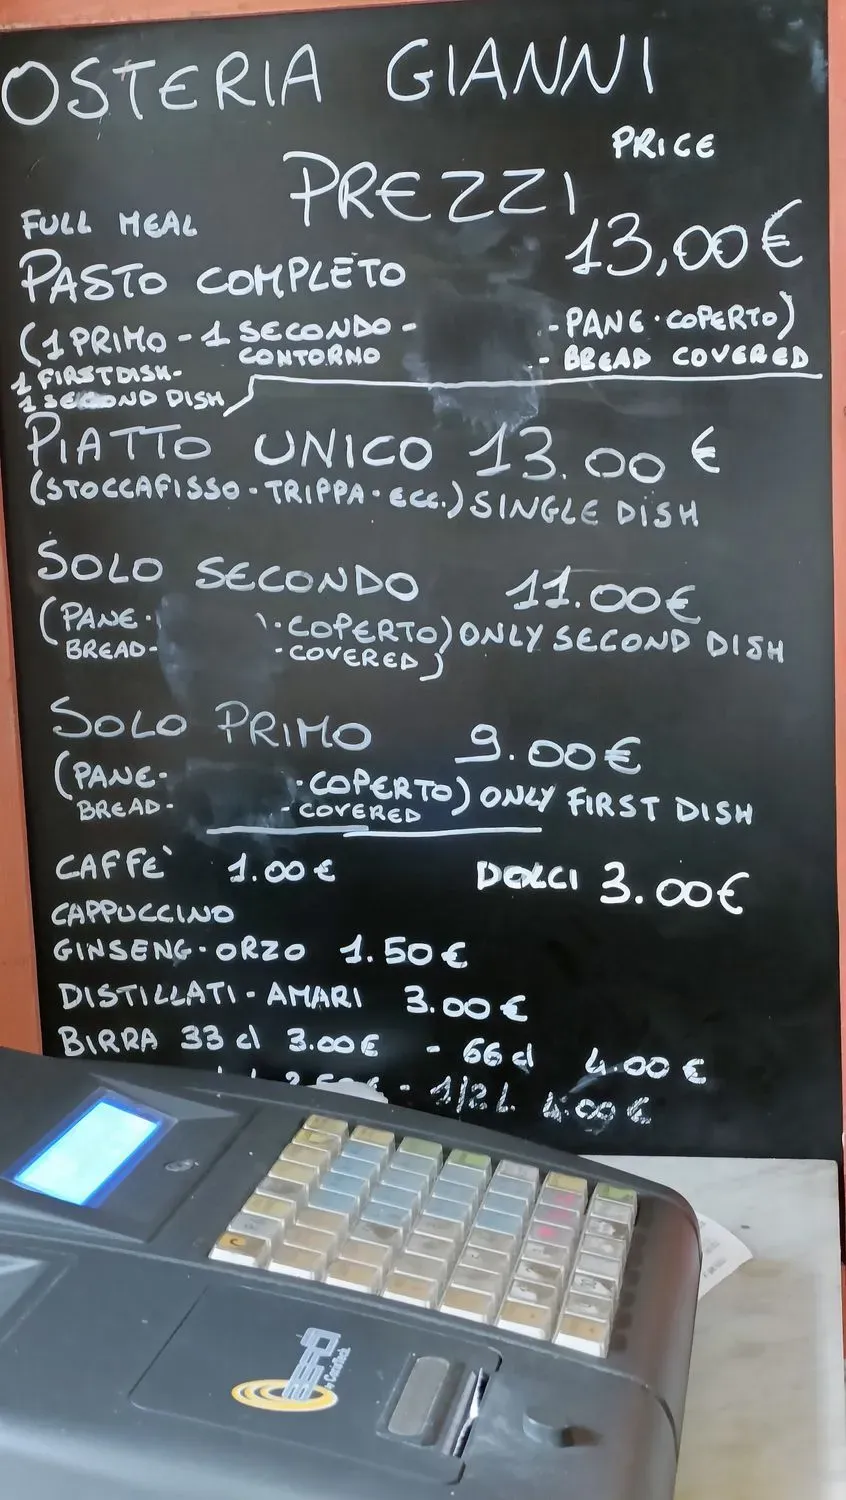 OSTERIA GIANNI
PRICE
PREZZI
FULL MEAL
PASTO COMPLETO 13,00€
(1 PRIMO - 1 SECONDO - - PANE · COPERTO)
CONTORNO - BREAD COVERED
1 FIRST DISH-
1 SECOND DISH
PIATTO UNICO 13.00 €
(STOCCAFISSO - TRIPPA - ECC.) SINGLE DISH
SOLO SECONDO 11.00€
(PANE · · COPERTO) ONLY SECOND DISH
BREAD- - COVERED)
SOLO PRIMO 9.00€
(PANE- · COPERTO) ONLY FIRST DISH
BREAD- - COVERED
CAFFE` 1.00€ DOLCI 3.00€
CAPPUCCINO
GINSENG - ORZO 1.50€
DISTILLATI - AMARI 3.00€
BIRRA 33 cl 3.00€ - 66 cl 4.00€
- 1/2 L 4.00€
by CustomTech